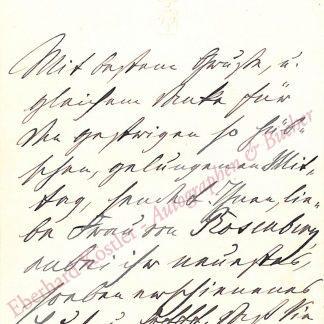 Mit bestem Gruße, u.
gleichem Danke für
den gestrigen so hüb-
schen, gelungenen Mit-
tag, sendet Ihnen, lie-
be Frau von Rosenberg
anbei ihr neuestes,
soeben erschienenes
daß Sie
Eberhard Köstler Autographen & Bücher